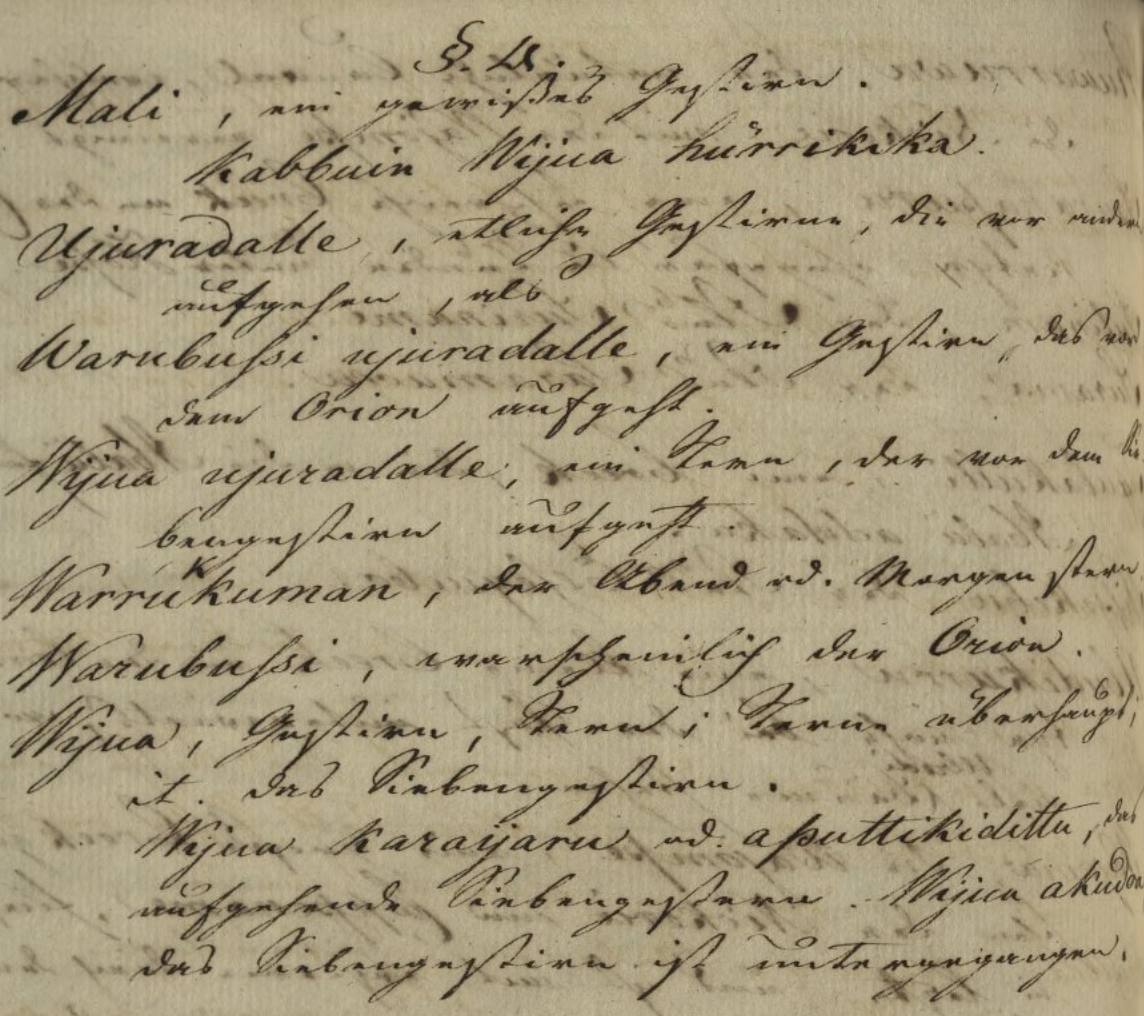 §. 4.
Mali, ein gewißes Gestirn.
Kabbuin Wijua hürrikika.
Ujuradalle, etliche Gestirne, die vor andern
aufgehen, als
Warubussi ujuradalle, ein Gestirn, das vor
dem Orion aufgeht.
Wijua ujuradalle, ein Stern, der vor dem Sie
bengestirn aufgeht.
Warrukuman, der Abend od. Morgenstern
Warubussi, warscheinlich der Orion.
Wijua, Gestirn, Stern; Sterne überhaupt;
it. das Siebengestirn.
Wijua karaijaru od. aputtikidittu, das
aufgehende Siebengestern. Wijua akudoa
das Siebengestirn ist untergegangen.